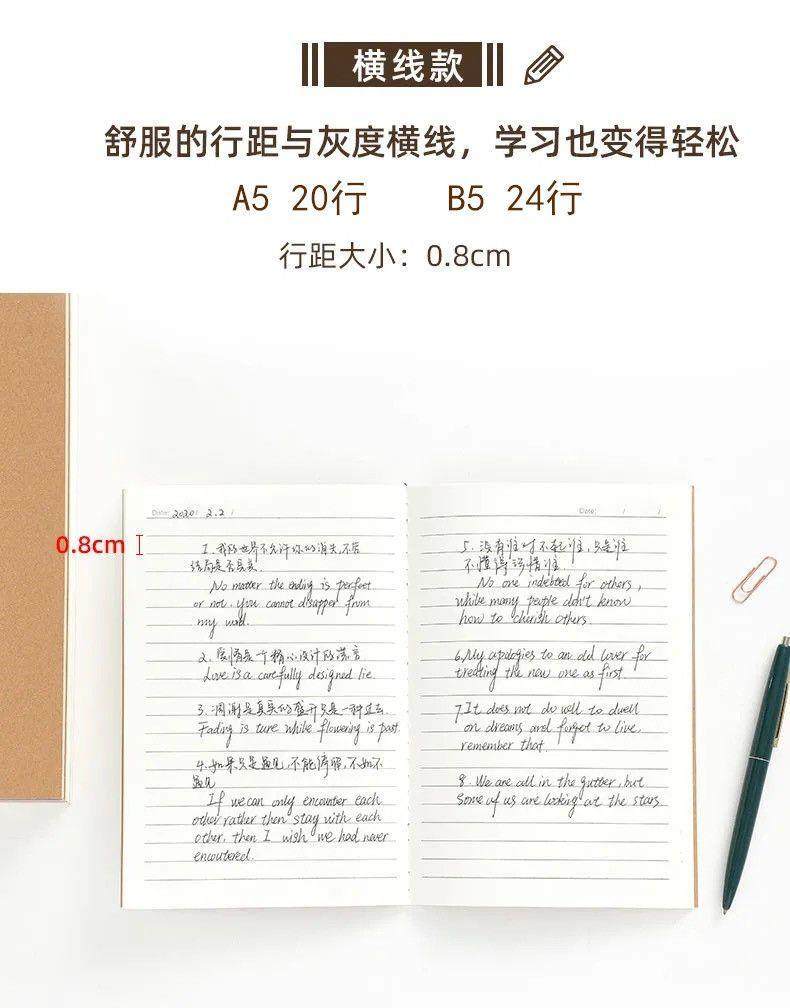 横线款
舒服的行距与灰度横线，学习也变得轻松
A5 20行 B5 24行
行距大小：0.8cm
0.8cm
Date: 2020 / 2.2 /
1. 我的世界不允许你的消失,不管
结局是否完美.
No matter the ending is perfect
or not. you cannot disapper from
my world.
2. 爱情是一个精心设计的谎言
Love is a carefully designed lie.
3. 凋谢是真实的盛开只是一种过去.
Fading is ture while flowering is past
4. 如果只是遇见,不能停留,不如不
遇见
If we can only encounter each
other rather then stay with each
other, then I wish we had never
encoutered.
Date: / /
5. 没有谁对不起谁,只是谁
不懂得珍惜谁.
No one indebted for others,
while many people don't know
how to cherish others.
6. My apologies to an old lover for
treating the new one as first.
7 It does not do well to dwell
on dreams and forget to live,
remember that.
8. We are all in the gutter, but
some of us are looking at the stars.